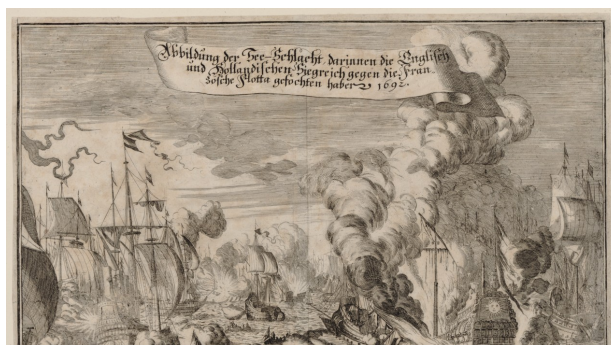 Abbildung der See-Schlacht darinnen die Englisch
und Holländischen Siegreich gegen die Fran
zösche Flotta gefochten haben 1692.